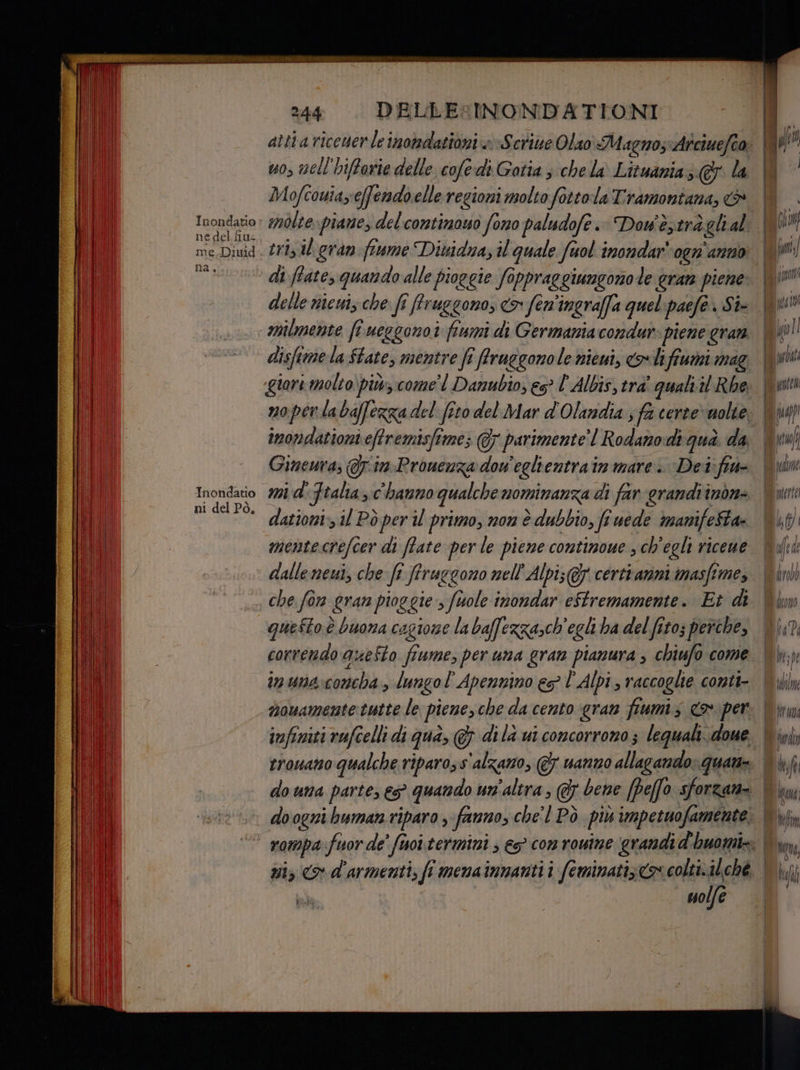 244 DELLE INONDATIONI
atti a riceuer le inondationi. Scriue Olao Magno, Arciuesco
uo, nell'historie delle cose di Gotia, che la Lituania, & la
Moscouia, essendo elle regioni molto sotto la Tramontana, &
Inondatio
ne del fiu-
me Diuid
na.
molte piane, del continouo sono paludose. Dou'è, trà gli al
tri, il gran fiume Diuidna, il quale suol inondar' ogn'anno
di state, quando alle pioggie soppraggiungono le gran piene
delle nieui, che si struggono, & sen'ingrassa quel paese. Si-
milmente si ueggono i fiumi di Germania condur piene gran
dissime la State, mentre si struggono le nieui, & li fiumi mag
giori molto più, come'l Danubio, & l'Albis, tra' quali il Rhe
no per la bassezza del sito del Mar d'Olandia, fa certe uolte
inondationi estremissime; & parimente'l Rodano di quà da
Gineura, & in Prouenza dou'egli entra in mare. De i fiu-
Inondatio
ni del Pò.
mi d'Italia, c'hanno qualche nominanza di far grandi inon-
dationi, il Pò per il primo, non è dubbio, si uede manifesta-
mente crescer di state per le piene continoue, ch'egli riceue
dalle neui, che si struggono nell'Alpi; & certi anni massime,
che son gran pioggie, suole inondar estremamente. Et di
questo è buona cagione la bassezza, ch'egli ha del sito; perche,
correndo questo fiume, per una gran pianura, chiuso come
in una concha, lungo l'Apennino & l'Alpi, raccoglie conti-
nouamente tutte le piene, che da cento gran fiumi, & per
infiniti ruscelli di quà, & di là ui concorrono; le quali doue
trouano qualche riparo, s'alzano, & uanno allagando quan-
do una parte, & quando un'altra, & bene spesso sforzan-
do ogni human riparo, fanno, che'l Pò più impetuosamente
rompa fuor de' suoi termini, & con rouine grandi d'huomi-
ni, & d'armenti, si mena innanti i seminati, & colti. il che
uolse